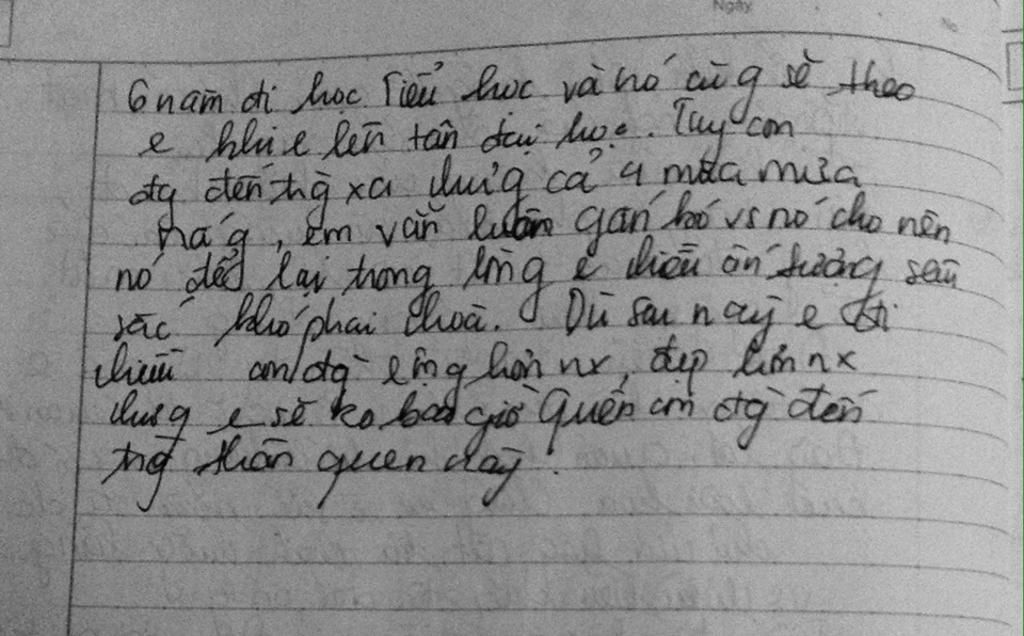 Ngày
No.
6 năm đi học Tiểu học và nó cũg sẽ theo
e khi e lên tận đại học. Tuy con
đg đến trg xa nhưg cả 4 mùa mưa
nắg, em vẫn luôn gắn bó vs nó cho nên
nó để lại trong lòng e nhiều ấn tượng sâu
sắc khó phai nhoà. Dù sau này e đi
nhiều con đg rộng hơn nx, đẹp hơn nx
nhưg e sẽ ko bao giờ Quên con đg đến
trg thân quen này.